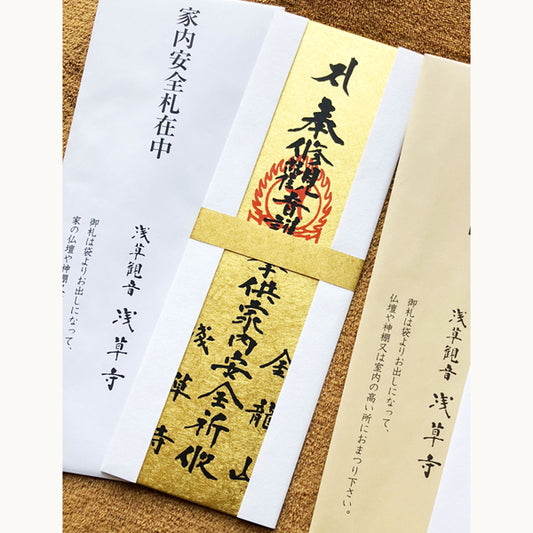 家内安全札在中
浅草観音 浅草寺
御札は袋よりお出しになって、
家の仏壇や神棚又
奉修觀音
供家内安全祈攸
金龍山
浅草寺
浅草観音 浅草寺
御札は袋よりお出しになって、
仏壇や神棚又は室内の高い所におまつり下さい。